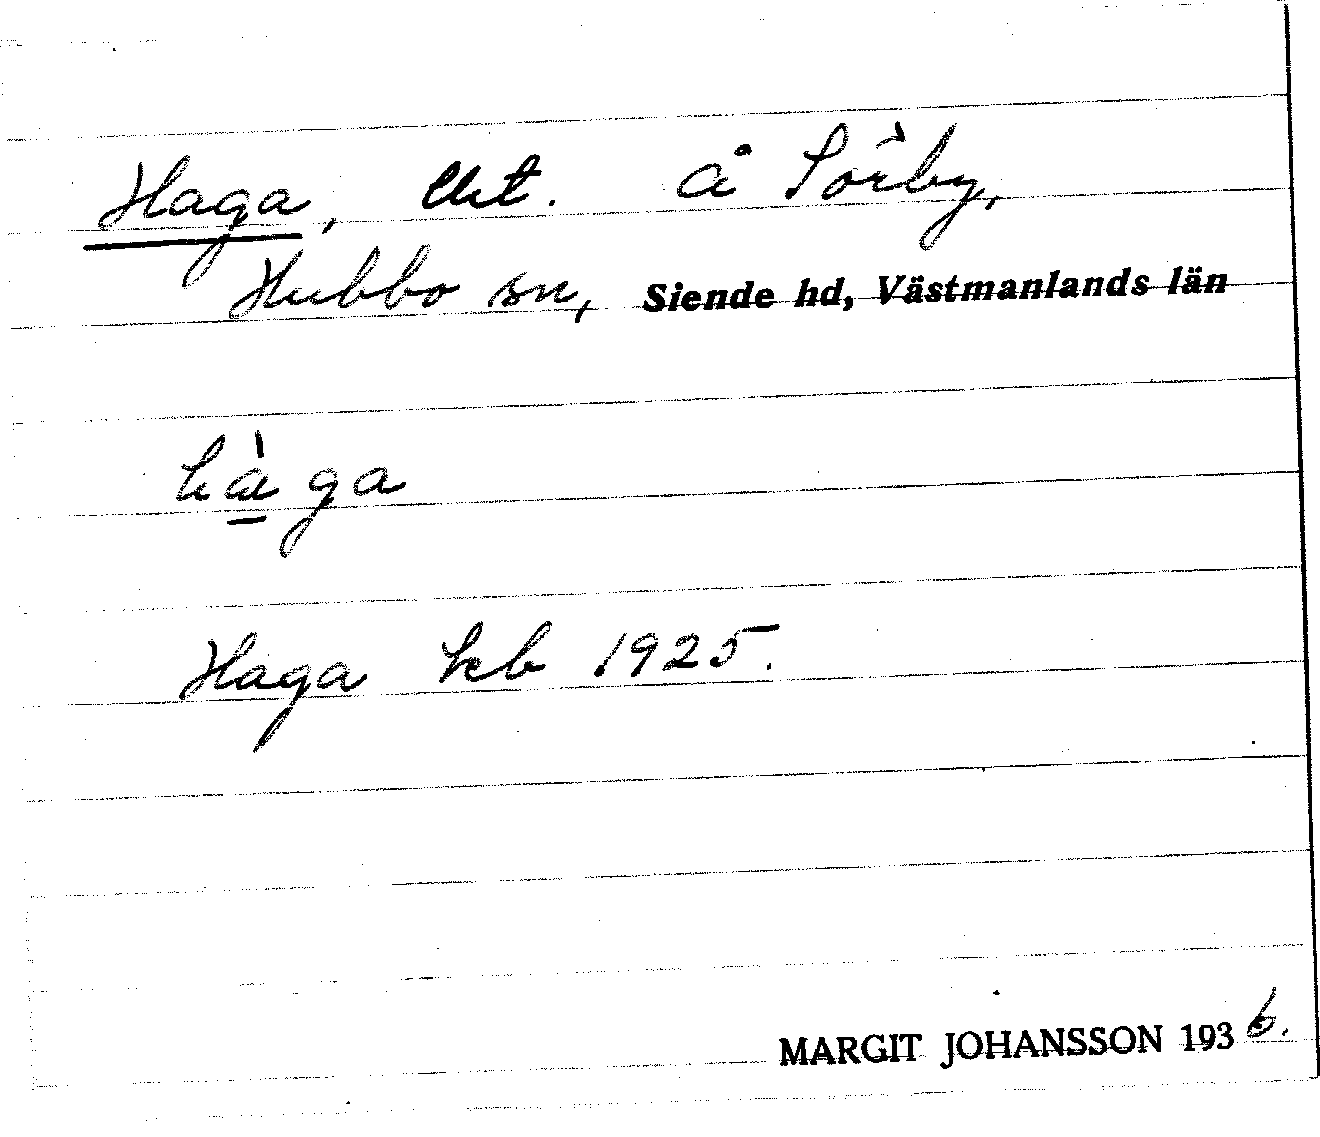 Haga, lht. å Sörby,
Hubbo sn, Siende hd, Västmanlands län
hà̱ga
Haga kb 1925.
MARGIT JOHANSSON 1936.